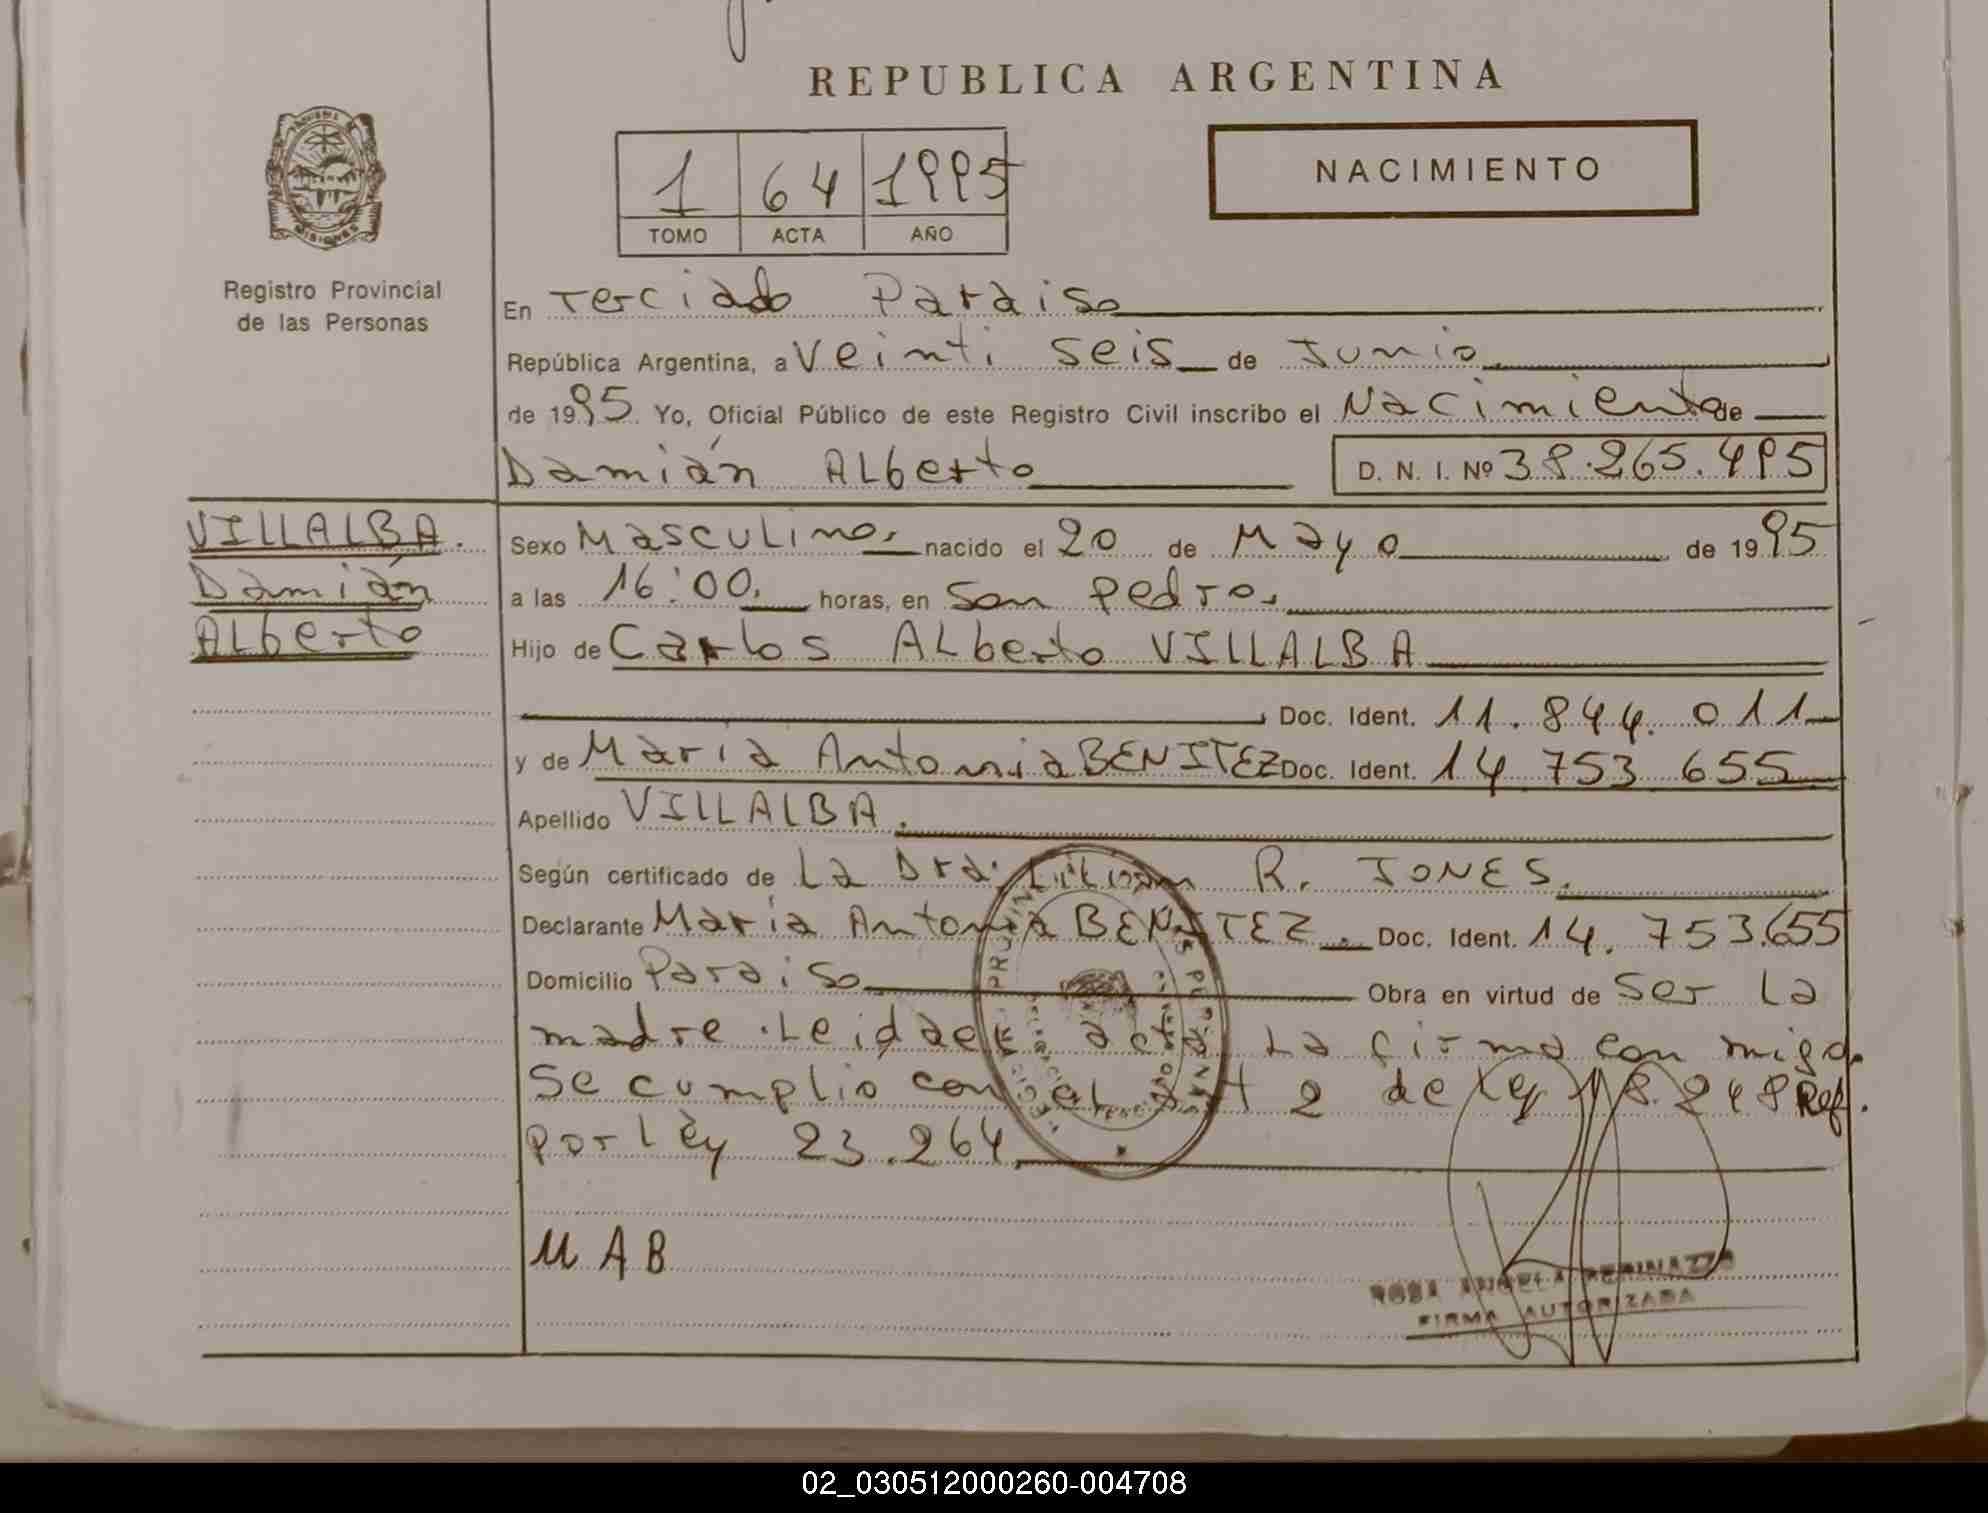 REPUBLICA ARGENTINA
NACIMIENTO
1 64 1995
TOMO ACTA AÑO
MISIONES
Registro Provincial
de las Personas
En Terciado Paraiso
República Argentina, a Veinti seis de Junio
de 1995 Yo, Oficial Público de este Registro Civil inscribo el Nacimiento de
Damián ALberto D. N. I. Nº 38.265.495
VILLALBA.
Damián
ALberto
Sexo Masculino, nacido el 20 de Mayo de 1995
a las 16:00. horas, en San Pedro,
Hijo de Carlos ALberto VILLALBA
Doc. Ident. 11.844.011
y de Maria Antonia BENITEZ Doc. Ident. 14 753 655
Apellido VILLALBA.
Según certificado de La Dra: Lilian R. JONES.
Declarante Maria Antonia BENITEZ. Doc. Ident. 14.753.655
Domicilio Paraiso Obra en virtud de Ser La
madre. Leida el acta La firma con migo.
Se cumplio con el Art 2 de Ley 18.248 Ref.
por Ley 23.264
M A B
ROSA ANGELA PERINAZZO
FIRMA AUTORIZADA
02_030512000260-004708